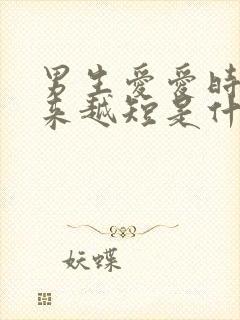 男生爱爱时
来越短是什
妖蝶